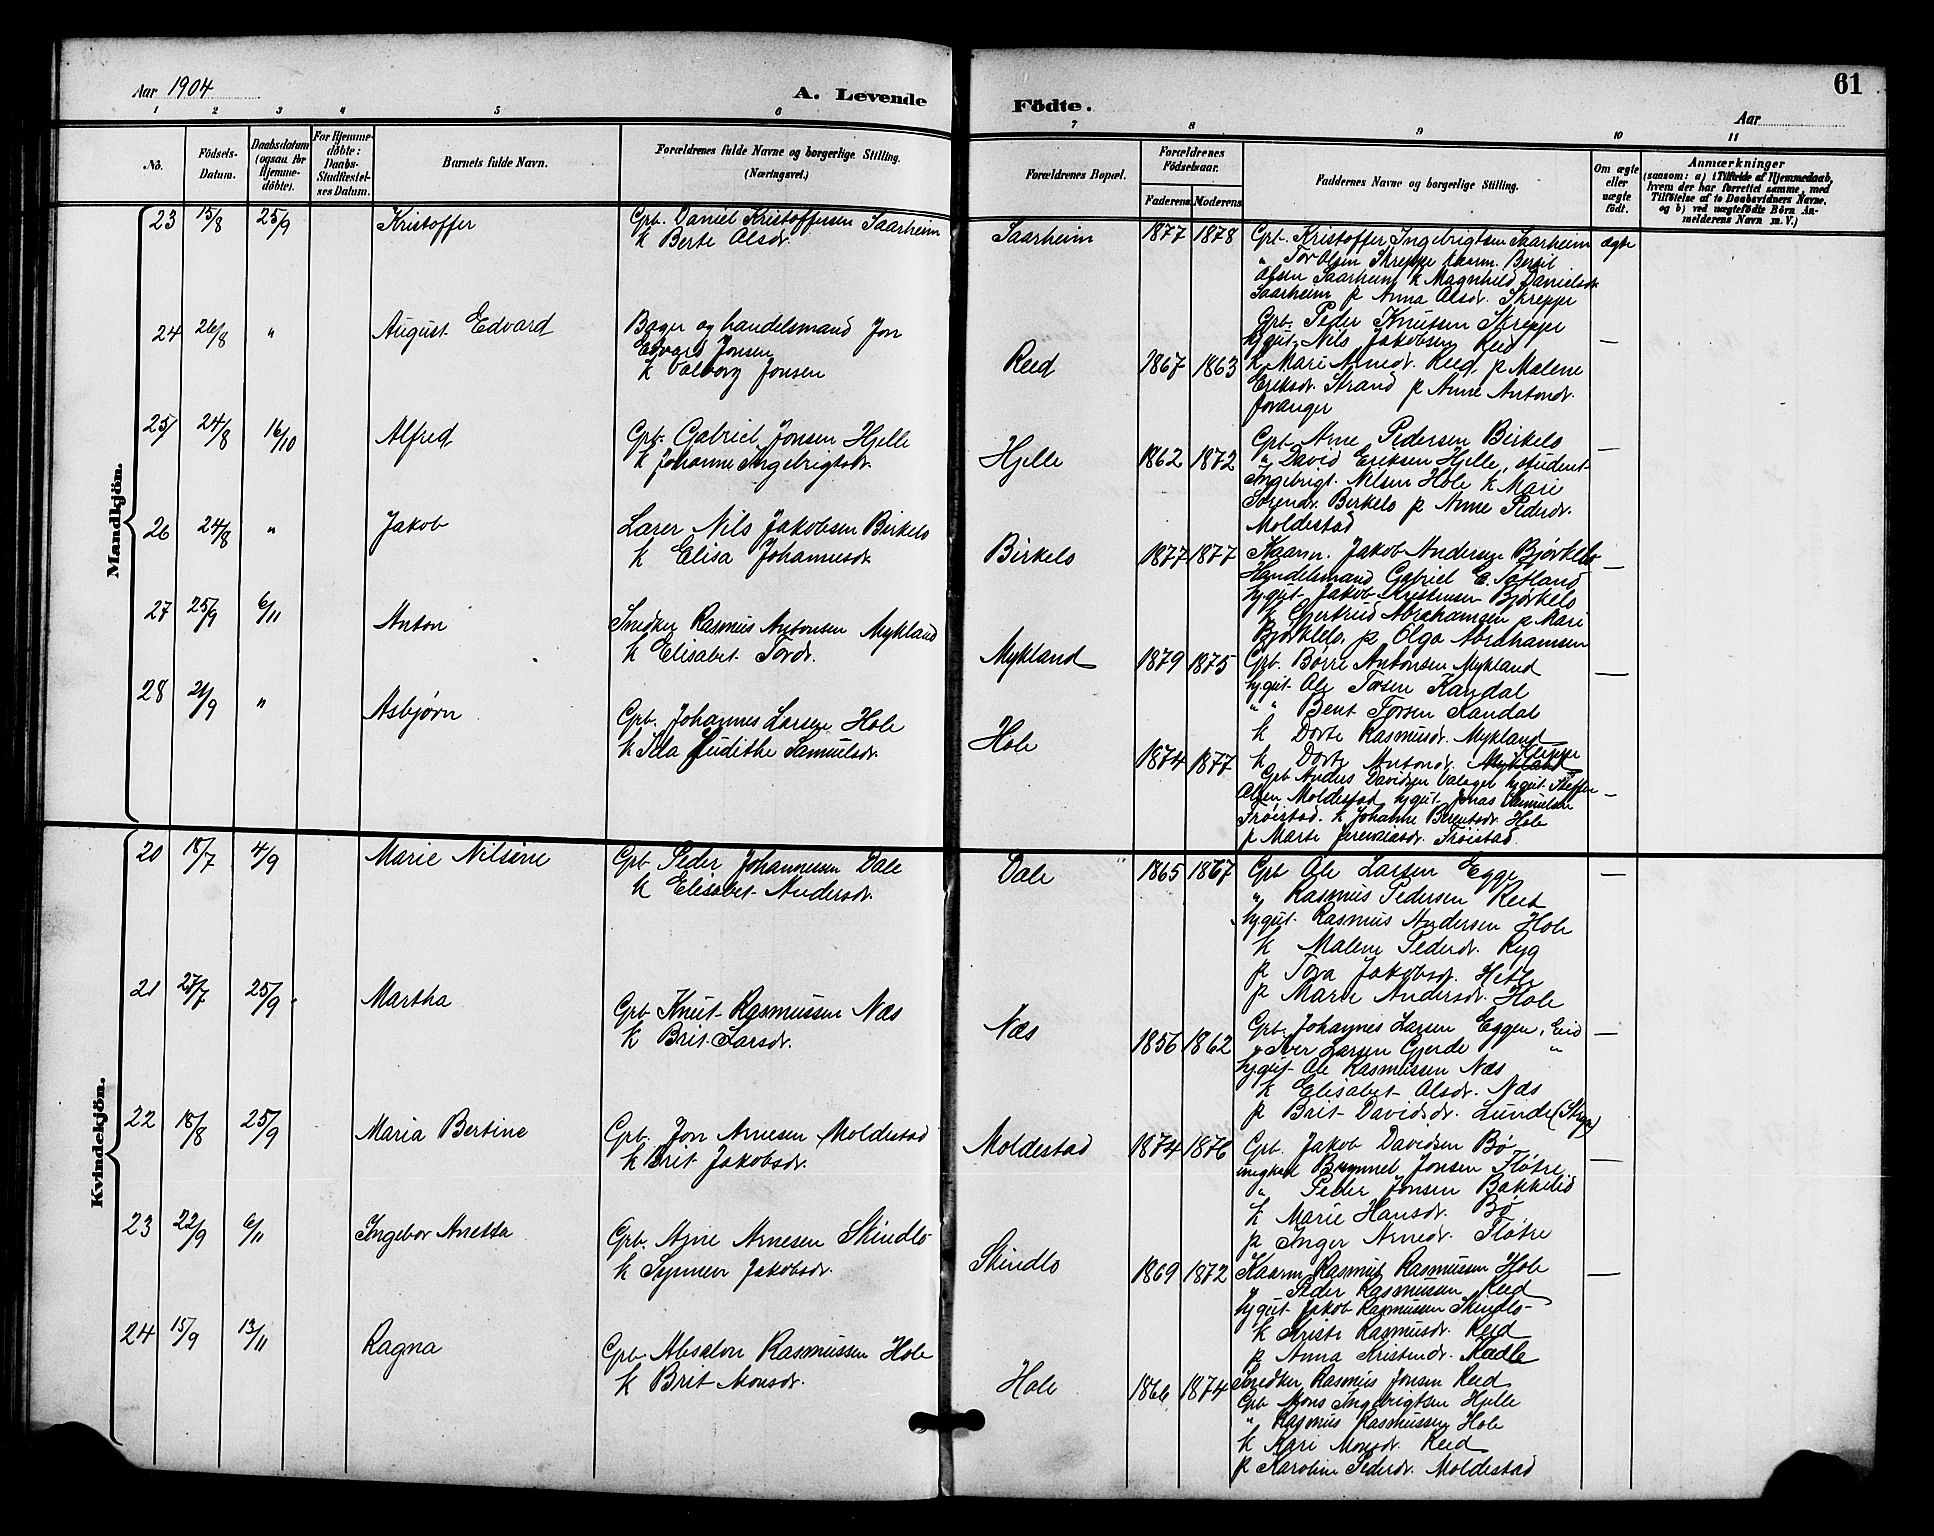 Aar 1904
A. Levende
Födte.
61
Aar
1 2 3 4 5 6 7 8 9 10 11
No.
Födsels-Datum.
Daabsdatum (ogsaa for Hjemme-döbte).
For Hjemme-döbte: Daabs-Stadfæstel-ses Datum.
Barnets fulde Navn.
Forældrenes fulde Navne og borgerlige Stilling. (Næringsvei.)
Forældrenes Bopæl.
Forældrenes Födselsaar.
Faderens Moderens
Faddernes Navne og borgerlige Stilling.
Om ægte eller uægte födt.
Anmærkninger
(saasom: a) i Tilfælde af Hjemmedaab,
hvem der har forrettet samme, med
Tilföielse af to Daabsvidners Navne.
og b) ved uægtefödte Börn An-
melderens Navn m. V.)
Mandkjön.
23 15/8 25/9 Kristoffer
Gpb. Daniel Kristoffersen Saarheim
k Berte Olsdr.
Saarheim 1877 1878
Gpb. Kristoffer Ingebrigtsen Saarheim ægte
" Tor Olsen Skreppe kaarm. Bertil
Olsen Saarheim k Magnhild Danielsdr
Saarheim p Anna Olsdr. Skreppe
24 26/8 " August Edvard
Bager og handelsmand Jon
Edvard Jonsen
k Valborg Jonsen
Reed 1867 1863
Gpb. Peder Knutsen Skreppe
hygut. Nils Jakobsen Reed —
k Mari Arnedr. Reed p Malene
Eriksdr. Strand p Anne Antondr.
foranger
25 24/8 16/10 Alfred
Gpb. Gabriel Jonsen Hjelle
k Johanne Ingebrigtsdr.
Hjelle 1862 1872
Gpb. Arne Pedersen Birkelo —
" David Eriksen Hjelle, student
Ingebrigt Nilsen Hole k Mari
Sørendr. Birkelo p Anne Pederdr.
Moldestad
26 24/8 " Jakob
Lærer Nils Jakobsen Birkelo
k Elisa Johannesdr.
Birkelo 1877 1877
Kaarm. Jakob Andersen Bjørkelo —
Handelsmand Gabriel E.
hygut Jakob Kristensen Bjørkelo
k Gjertrud Abrahamsen p Mari
Bjørkelo, p Olga Abrahamsen
27 25/9 6/11 Anton
Snedker Rasmus Antonsen Mykland
k Elisabet Tordr.
Mykland 1879 1875
Gpb. Børre Antonsen Mykland
hygut Ole Torsen Kandal —
" " Bent Torsen Kandal
k Dorte Rasmusdr. Mykland
k Dorte Antondr. Mykland Kleppe
28 21/9 " Asbjørn
Gpb. Johannes Larsen Hole
k Ida Judithe Samuelsdr.
Hole 1874 1877
Gpb Anders Davidsen hygut. Steffen
Olsen Moldestad, hygut. Jonas Samuelsen —
Trøistad. k Johanne Berentsdr Hole
p Marte Jeremiasdr. Trøistad.
Kvindekjön.
20 18/7 4/9 Marie Nilsine
Gpb. Peder Johannessen Dale
k Elisabet Andersdr.
Dale 1865 1867
Gpb Ole Larsen Egge —
" Rasmus Pedersen Reed
hygut. Rasmus Andersen Hole
k Malene Pederdr. Ryg
p Tora Jakobsdr.
p Marie Andersdr. Hole
21 27/7 25/9 Martha
Gpb Knut Rasmussen Næs
k Brit Larsdr.
Næs 1856 1862
Gpb. Johannes Larsen Eggen, Eid —
" Iver Larsen Gjerde "
hygut Ole Rasmussen Næs
k Elisabet Olsdr. Næs
p Brit Davidsdr. Lunde
22 18/8 25/9 Maria Bertine
Gpb. Jon Arnesen Moldestad
k Brit Jakobsdr.
Moldestad 1874 1876
Gpb. Jakob Davidsen Bø —
ungkarl Brynnel Jonsen Fløtre
" Peder Jonsen Bakkelid
k Marie Hansdr. Bø
p Inger Arnedr. Fløtre
23 22/9 6/11 Ingebor Anetta
Gpb. Arne Arnesen Skindlo
k Synneve Jakobsdr.
Skindlo 1869 1872
Kaarm. Rasmus Rasmussen Hole —
" Peder Rasmussen Reed
hygut Jakob Rasmussen Skindlo
k Kristi Rasmusdr. Reed
p Anna Kristendr.
24 15/9 13/11 Ragna
Gpb. Absalon Rasmussen Hole
k Brit Monsdr.
Hole 1866 1874
Snedker Rasmus Jonsen Reed
Gpb Mons Ingebrigtsen Hjelle
" Rasmus Rasmussen Hole
k Kari Monsdr. Reed
p Karoline Pederdr. Moldestad